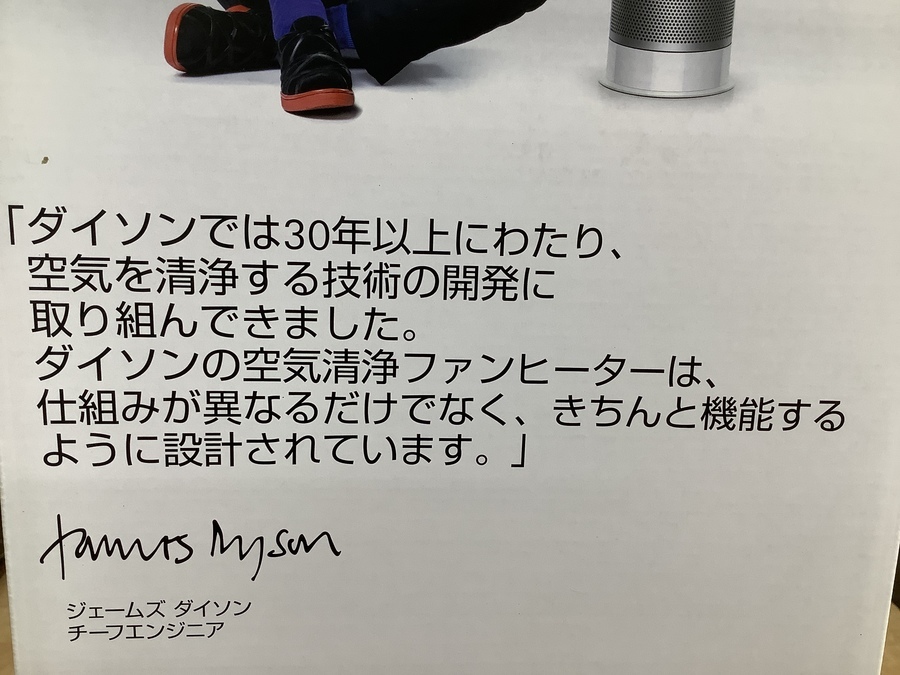 「ダイソンでは30年以上にわたり、
空気を清浄する技術の開発に
取り組んできました。
ダイソンの空気清浄ファンヒーターは、
仕組みが異なるだけでなく、きちんと機能する
ように設計されています。」
James Dyson
ジェームズ ダイソン
チーフエンジニア